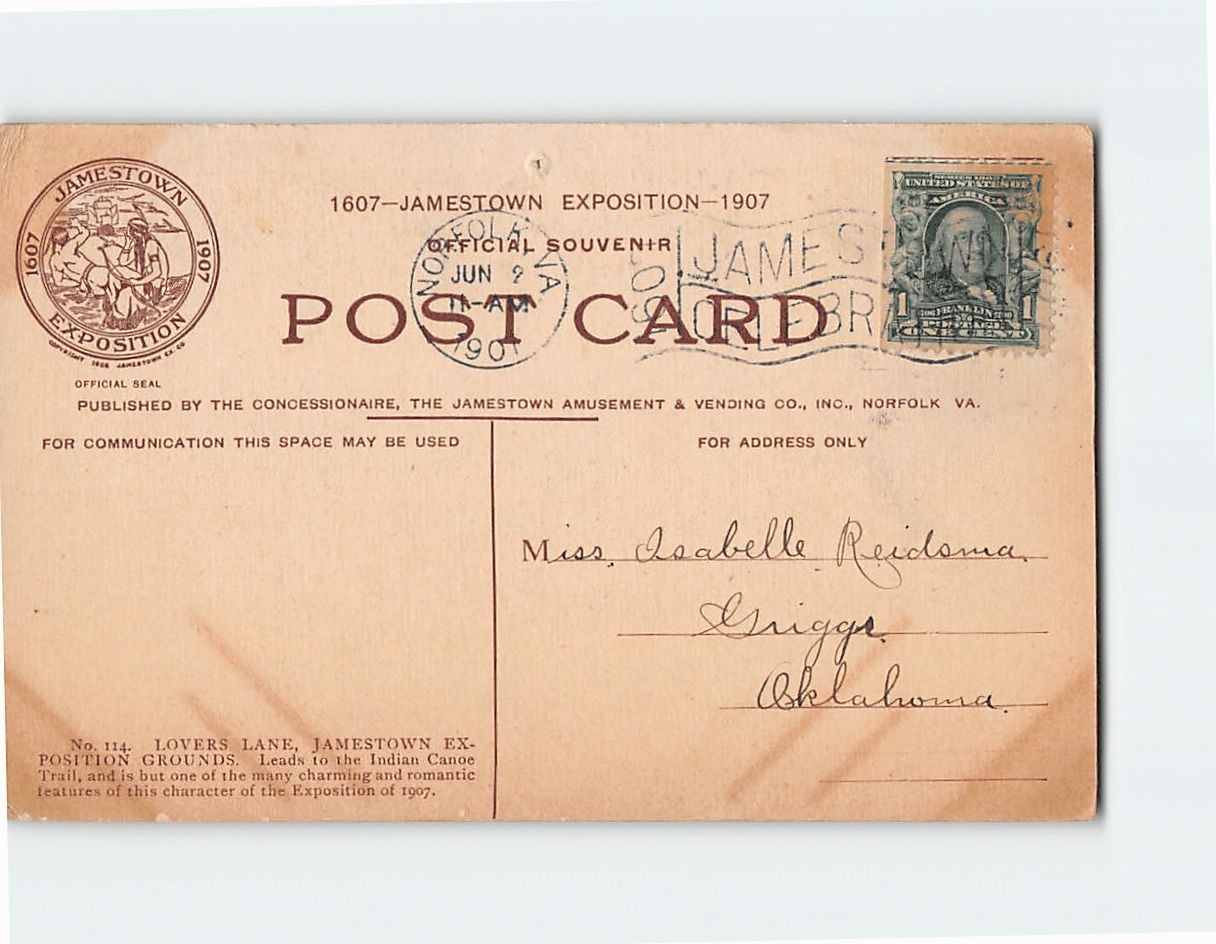 JAMESTOWN
1607 1907
EXPOSITION
COPYRIGHT 1906 JAMESTOWN EX. CO
OFFICIAL SEAL
1607—JAMESTOWN EXPOSITION—1907
OFFICIAL SOUVENIR
POST CARD
NORFOLK VA
JUN
11-AM
190
JAMES
SERIES 1902
UNITED STATES OF
AMERICA
1 FRANKLIN 1
ONE CENT
PUBLISHED BY THE CONCESSIONAIRE, THE JAMESTOWN AMUSEMENT & VENDING CO., INC., NORFOLK VA.
FOR COMMUNICATION THIS SPACE MAY BE USED
FOR ADDRESS ONLY
Miss. Isabelle Reidsma.
Griggs
Oklahoma.
No. 114. LOVERS LANE, JAMESTOWN EX-
POSITION GROUNDS. Leads to the Indian Canoe
Trail, and is but one of the many charming and romantic
features of this character of the Exposition of 1907.